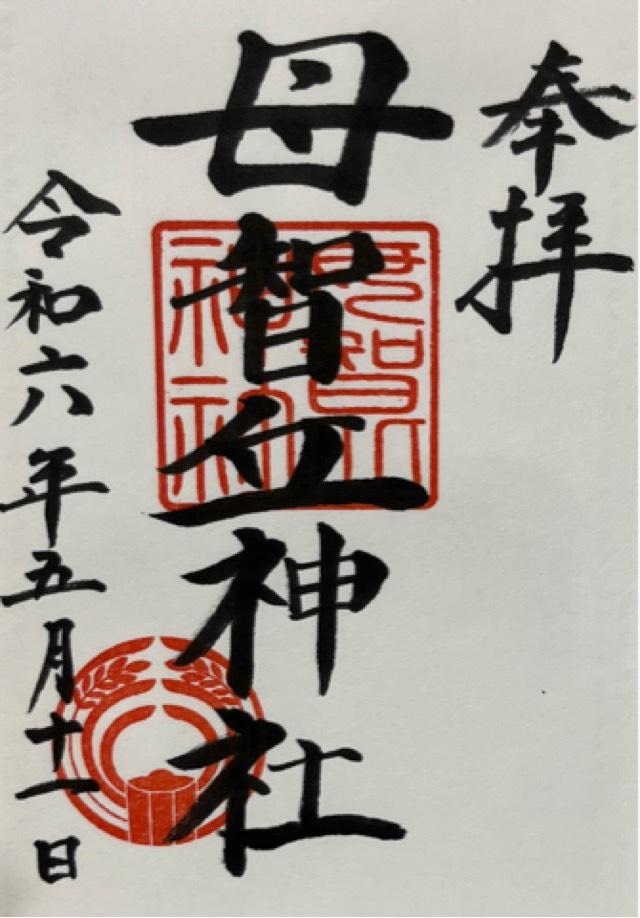 奉拝
母智丘神社
令和六年五月十一日
母智丘
神社